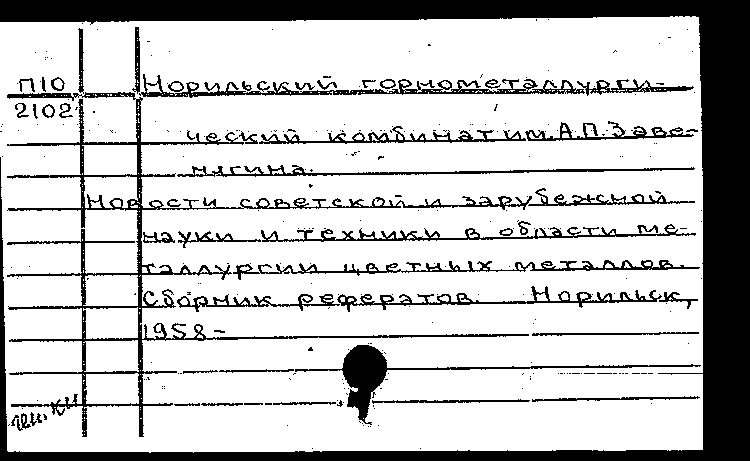 П10
2102
Норильский горнометаллурги-
ческий комбинат им. А.П. Заве-
нягина.
Новости советской и зарубежной
науки и техники в области ме-
таллургии цветных металлов.
Сборник рефератов. Норильск,
1958-